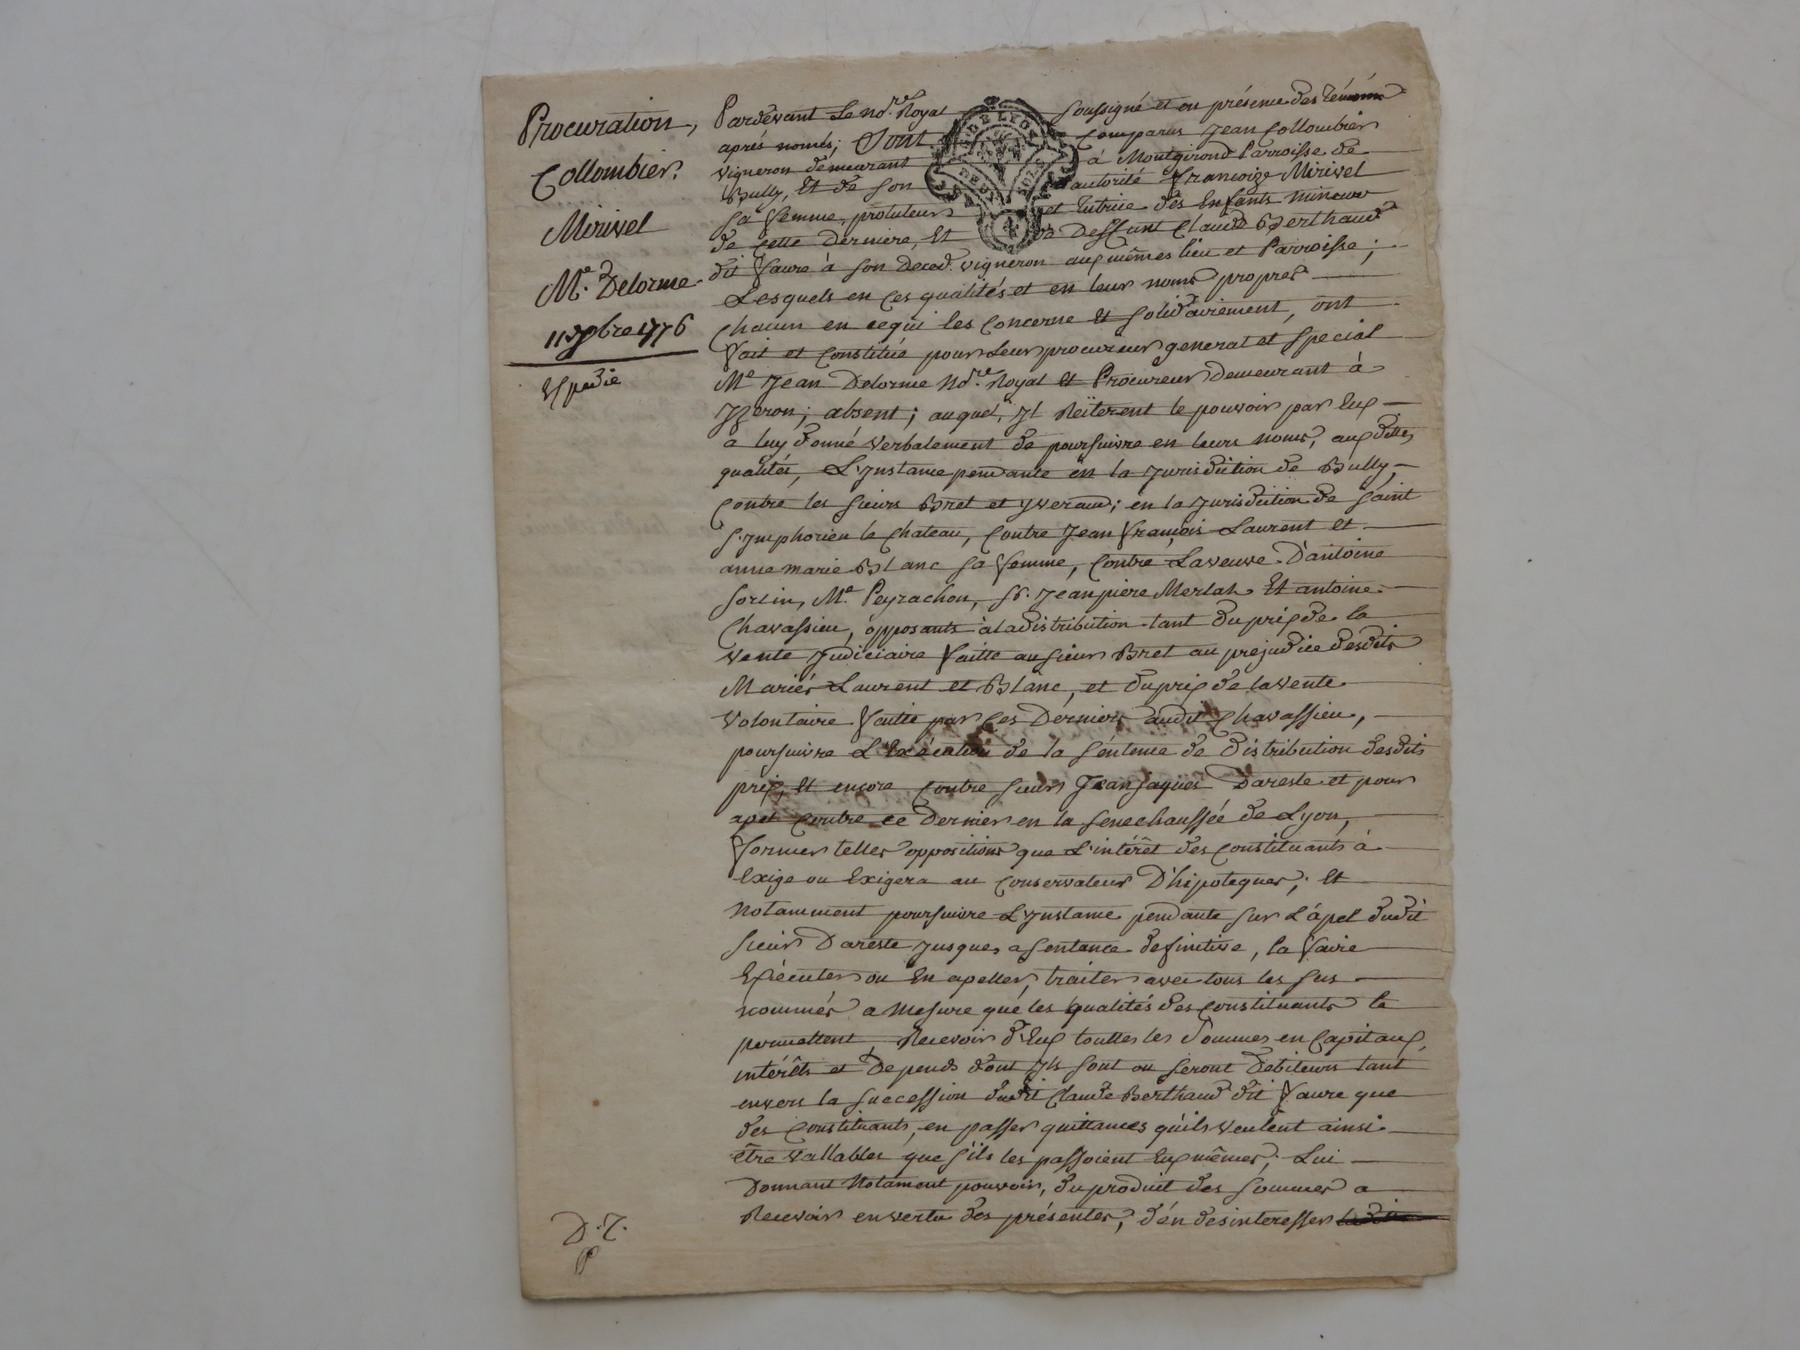 Procuration,
Collombier.
Mirivel
Me. Delorme
11 7bre 1776
Expedié
Pardevant Le nore. Royal soussigné et en présence des témoins
après només; Sont comparus Jean Collombier
vigneron démeurant à Montgirond Parroisse de
Bully, Et de son autorité Francoize Mirivel
sa femme, protuteur et tutrice des Enfants mineur
de cette derniere, Et de Deffunt Claude Berthaud
dit Faure à son deced. vigneron aux mêmes lieu et Parroisse;
Lesquels en ces qualités et en leur noms propres
chacun en ce qui les concerne et solidairement, ont
fait et constitué pour Leur procureur general et special
Me Jean Delorme Nore. Royal et Procureur demeurant à
Yzeron; absent; auquel, jl Reïterent le pouvoir par Eux
a luy donné verbalement de poursuivre en leurs noms, aux dittes
qualités, L'Jnstance pendante en la Jurisdiction de Bully,
contre les sieurs Bret et yveraud; en la Jurisdiction de saint
simphorien le Chateau, contre Jean françois Laurent et
anne marie Blanc sa femme, contre La veuve D'antoine
, Me. Peyrachon, sr. Jean piere Merlat Et antoine
Chavassieu, opposants à la distribution tant du prix de la
vente Judiciaire faitte au sieur Bret au prejudice desdits
Mariés Laurent et Blanc, et du prix de la vente
volontaire faitte par ces Derniers audit Chavassieu,
poursuivre L'Exécution de la séntence de distribution desdits
prix, Et encore contre sieur Jean Jaques Dareste et pour
apel contre ce Dernier en la senechaussée de Lyon,
former telles oppositions que L'intérêt des constituants à
Exige ou Exigera au conservateur D'hipoteques; Et
Notamment poursuivre L'Jnstance pendante sur L'apel dudit
sieur Dareste Jusques a sentance definitive, la faire
Exécuter ou En apeller, traiter avec tous les sus
nommés a Mesure que les qualités des constituants le
permettent, Recevoir d'Eux touttes les Sommes en Capitaux,
intérêts et Depends dont Jls sont ou seront debiteurs tant
envers la succession dudit Claude Berthaud dit Faure que
des Constituants, en passer quittances qu'ils veulent ainsi
être vallables que s'ils les passoient Eux mêmes; Lui
Donnant Notament pouvoir, du produit des sommes a
Recevoir en vertu des présentes, d'én desinteresser
D.7.
GEN. DE LYON
DEUX SOLS